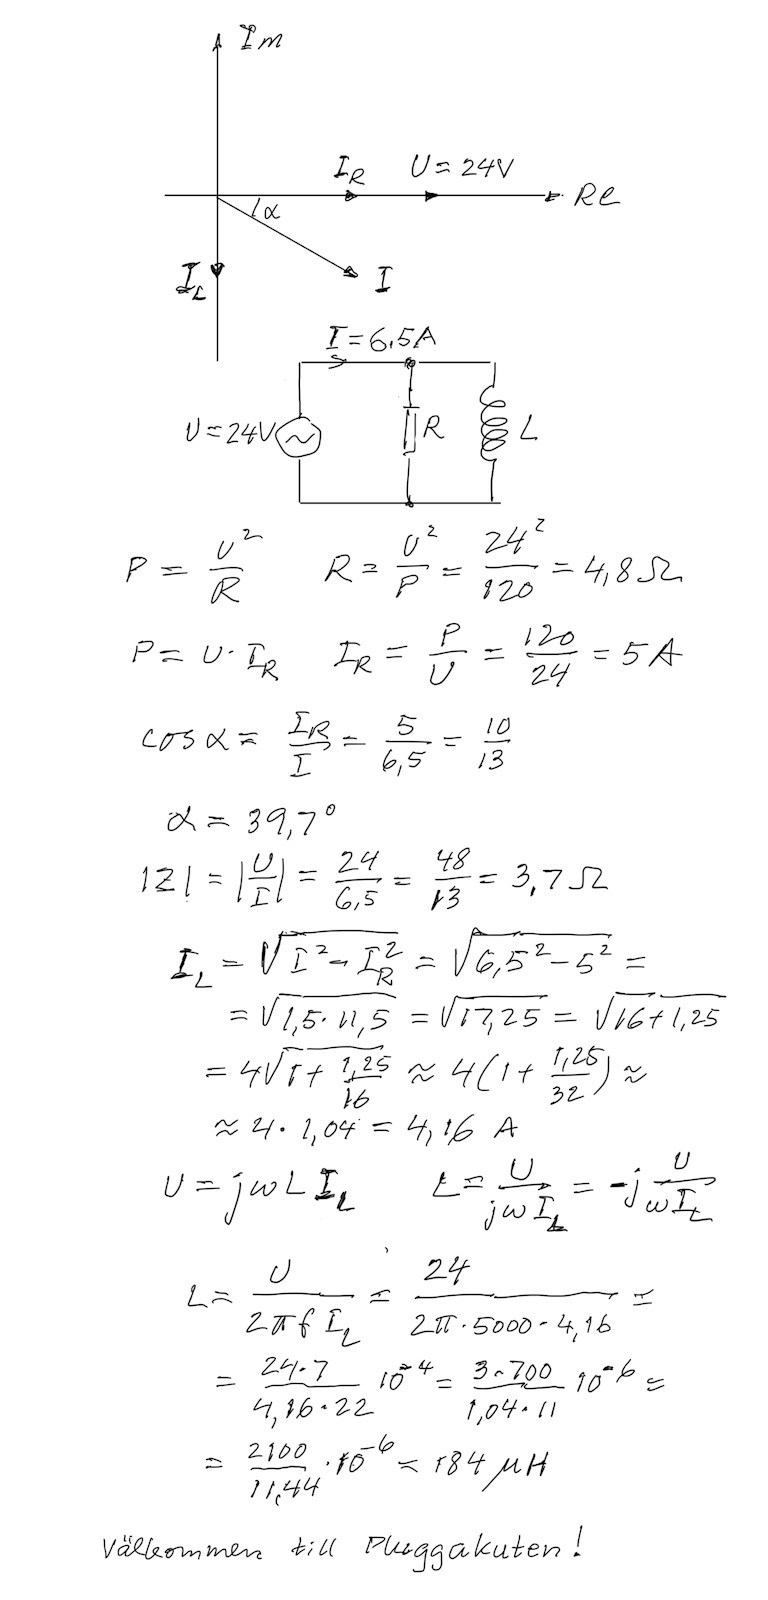 Im
I_R U = 24V
Re
α
I_L I
I = 6,5A
U = 24V R L
P = U²/R R = U²/P = 24²/120 = 4,8 Ω
P = U · I_R I_R = P/U = 120/24 = 5 A
cos α = I_R/I = 5/6,5 = 10/13
α = 39,7°
|Z| = |U/I| = 24/6,5 = 48/13 = 3,7 Ω
I_L = √(I² - I_R²) = √(6,5² - 5²) =
= √(1,5 · 11,5) = √17,25 = √(16 + 1,25)
= 4√(1 + 1,25/16) ≈ 4(1 + 1,25/32) ≈
≈ 4 · 1,04 = 4,16 A
U = jωL I_L L = U/(jω I_L) = -j U/(ω I_L)
L = U/(2πf I_L) = 24/(2π · 5000 · 4,16) =
= (24 · 7)/(4,16 · 22) 10⁻⁴ = (3 · 700)/(1,04 · 11) 10⁻⁶ =
= 2100/11,44 · 10⁻⁶ = 184 μH
Välkommen till Pluggakuten!